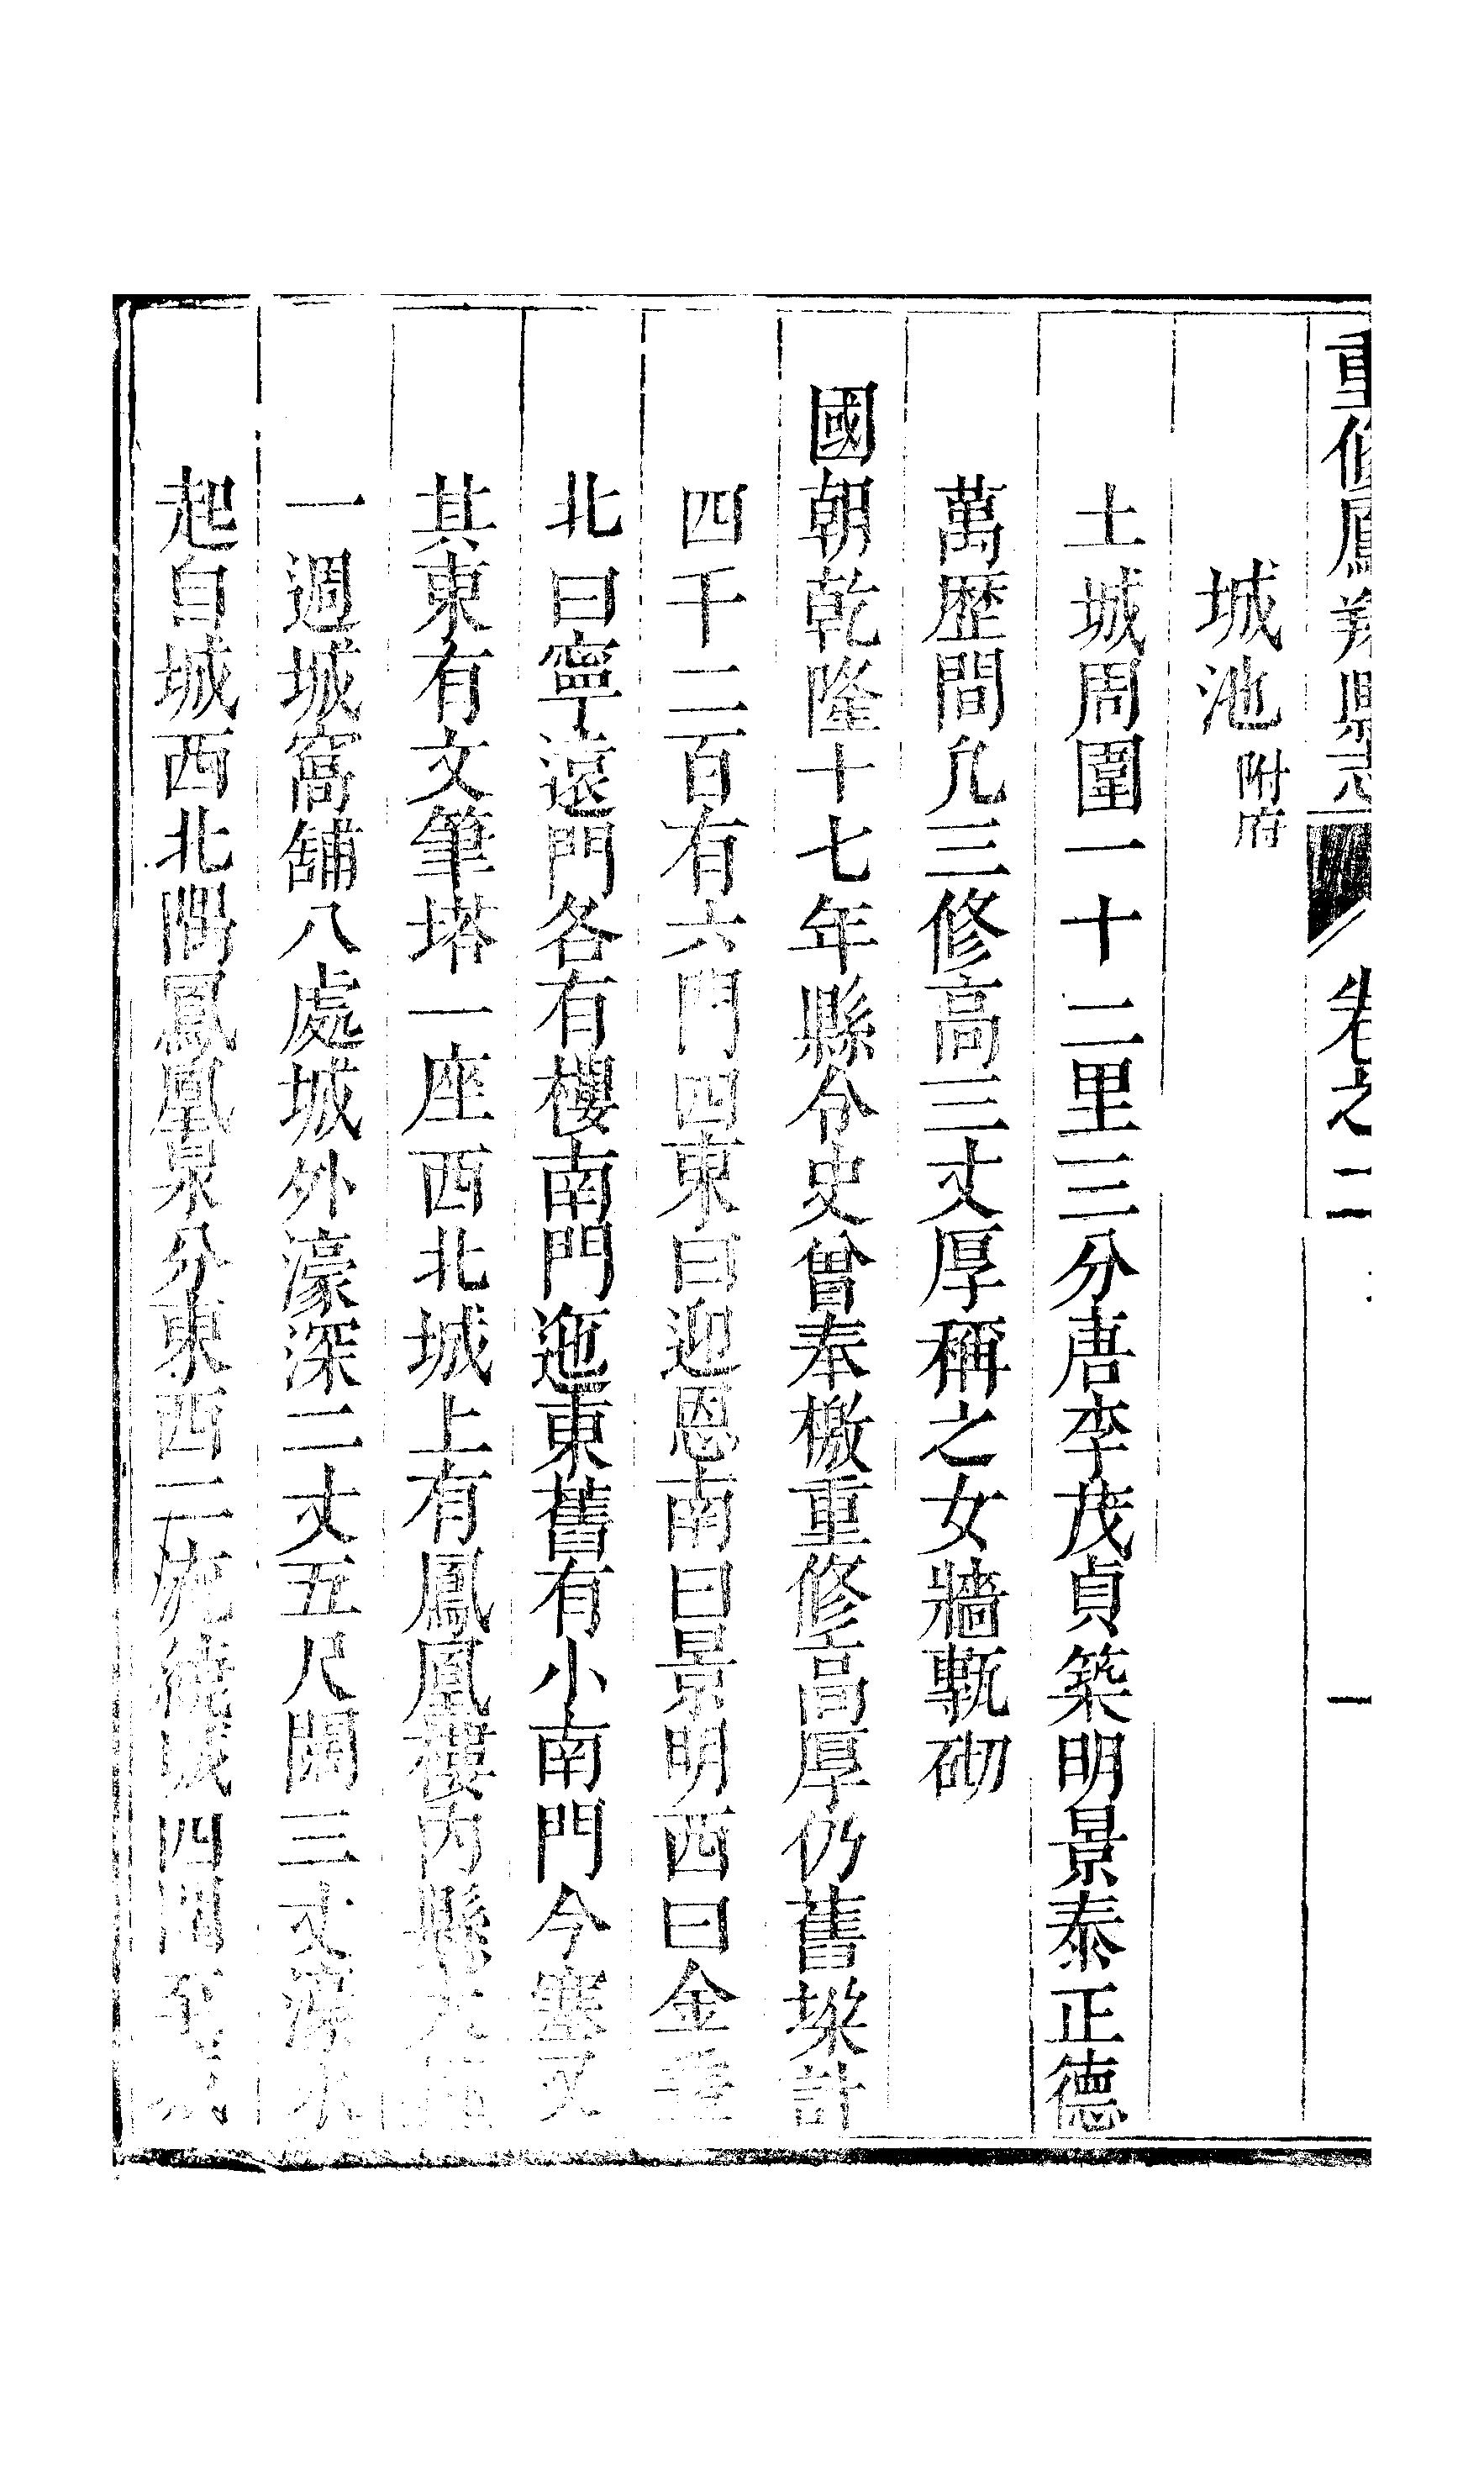 重修鳳翔縣志 卷之二 一
城池附府
土城周圍一十二里三分唐李茂貞築明景泰正德
萬歷間凡三修高三丈厚稱之女牆甎砌
國朝乾隆十七年縣令史曾奉檄重修高厚仍舊垜計
四千二百有六門四東曰迎恩南曰景明西曰金鞏
北曰寧遠門各有樓南門迤東舊有小南門今塞又
其東有文筆塔一座西北城上有鳳凰樓內縣大匾
一週城窩舖八處城外濠深二丈五尺闊三丈濠水
起自城西北隅鳳凰泉分東西二流繞城四周至城